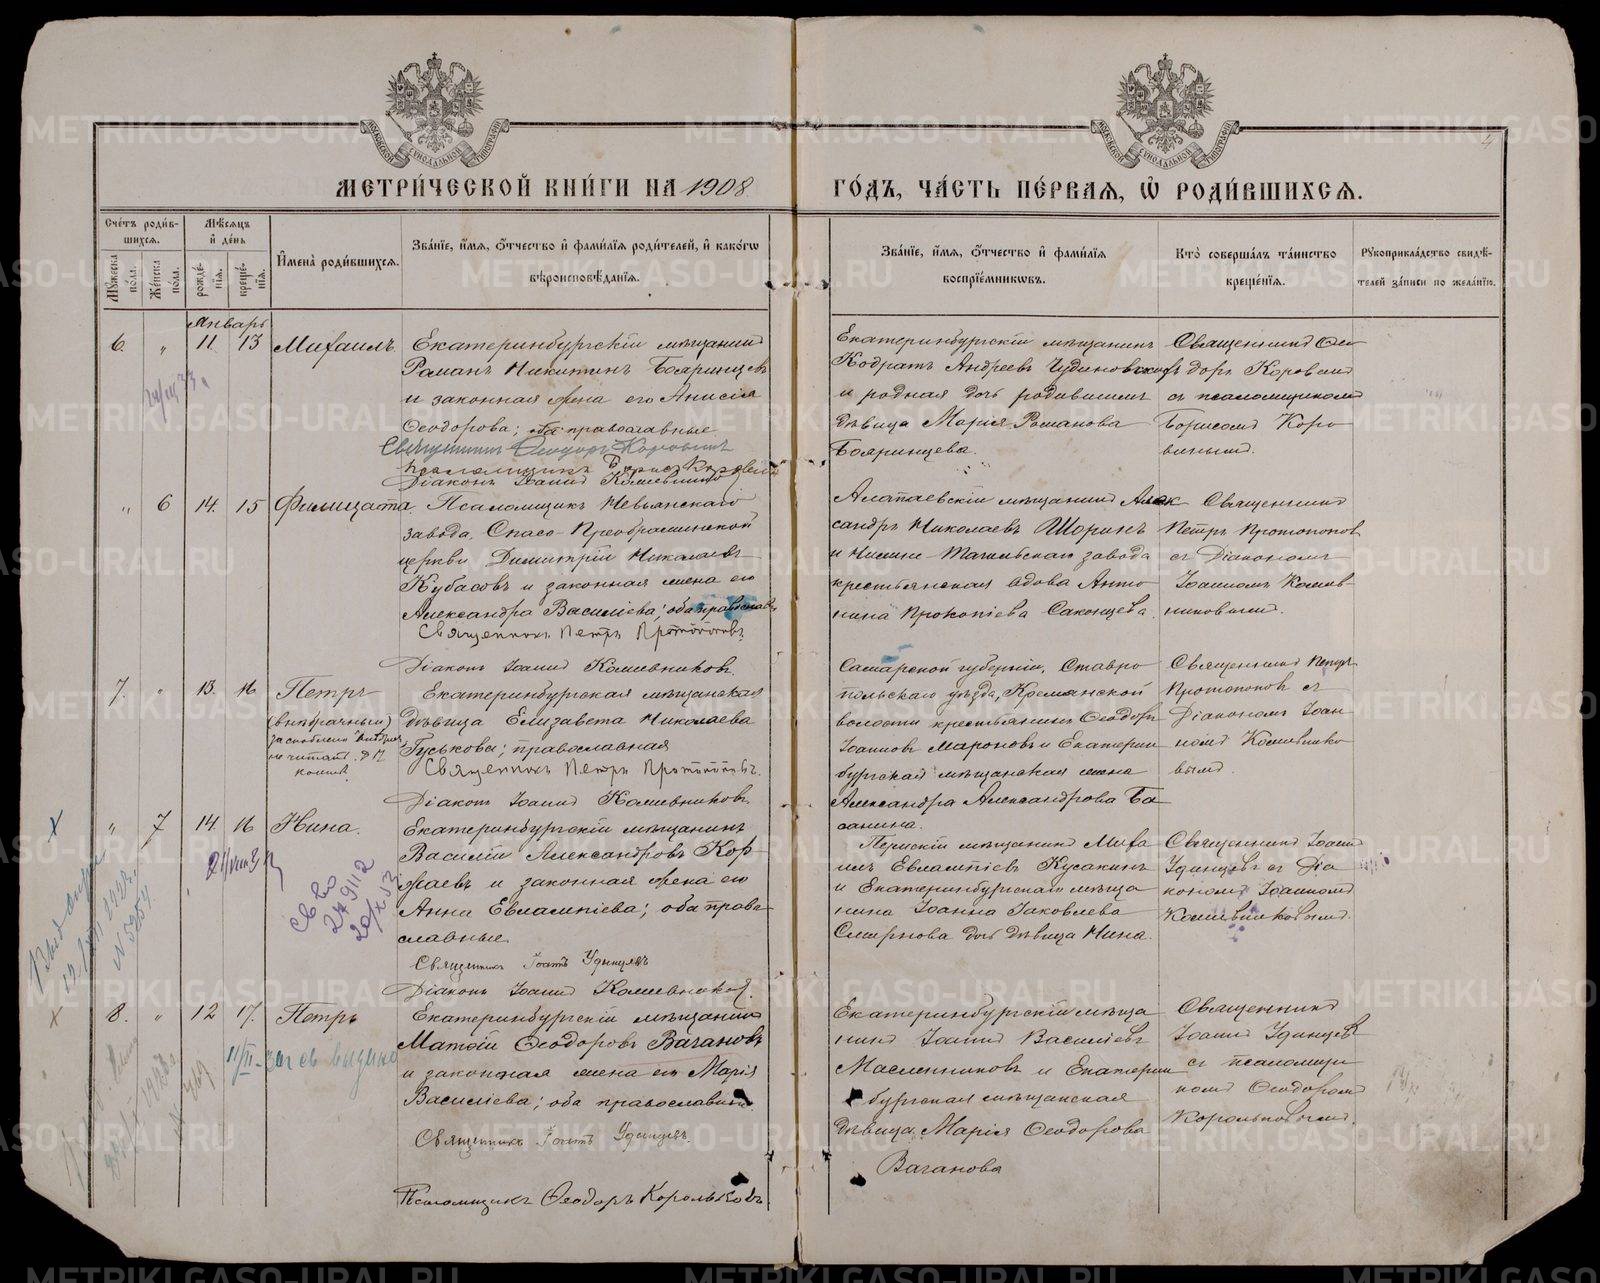 МОСКОВСКОЙ СѴНОДАЛЬНОЙ ТИПОГРАФІИ
МОСКОВСКОЙ СѴНОДАЛЬНОЙ ТИПОГРАФІИ
4
МЕТРИ́ЧЕСКОЙ КНИ́ГИ НА 1908 ГО́ДЪ, ЧА́СТЬ ПЕ́РВАЯ, Ѡ҆ РОДИ́ВШИХСЯ.
Сче́тъ роди́в-
шихся.
Мꙋ́жеска по́ла.
Же́нска по́ла.
Мѣ́сяцъ
и҆ де́нь
рожде́-
нїя.
креще́-
нїя.
И҆мена̀ роди́вшихся.
Зва́нїе, и҆́мя, ѻ҆́тчество и҆ фами́лїя роди́телей, и҆ како́гѡ
вѣроисповѣ́данїя.
Зва́нїе, и҆́мя, ѻ҆́тчество и҆ фами́лїя
воспрїе́мникѡвъ.
Кто̀ соверша́лъ та́инство
креще́нїя.
Рꙋкоприкла́дство свидѣ́-
телей за́писи по жела́нїю.
Январь
6. " 11. 13 Михаилъ.
Екатеринбургскій мѣщанинъ
Романъ Никитинъ Бояринцевъ
и законная жена его Анисія
Ѳеодорова; оба православные
Священникъ Ѳеодоръ Коровинъ
Псаломщикъ Борисъ Коровинъ
Діаконъ Іоаннъ Кошевниковъ
Екатеринбургскій мѣщанинъ
Кодратъ Андреевъ Чудиновскихъ
и родная дочь родившимъ
дѣвица Марія Романова
Бояринцева.
Священникъ Ѳео
доръ Коровинъ
съ псаломщикомъ
Борисомъ Коро
винымъ.
" 6 14. 15 Филицата.
Псаломщикъ Невьянскаго
завода, Спасо-Преображенской
церкви Димитрій Николаевъ
Кубасовъ и законная жена его
Александра Василіева; оба православ.
Священникъ Петръ Протопоповъ.
Діаконъ Іоаннъ Кошевниковъ.
Алапаевскій мѣщанинъ Алек
сандръ Николаевъ Шоринъ
и Нижне-Тагильскаго завода
крестьянская вдова Анто
нина Прокопіева Саконцева.
Священникъ
Петръ Протопопов
съ Діакономъ
Іоанномъ Кошев-
никовымъ.
7. " 13. 16 Петръ
(внѣбрачный)
Екатеринбургская мѣщанская
дѣвица Елизавета Николаева
Гуськова; православная
Священникъ Петръ Протопоповъ.
Діаконъ Іоаннъ Кошевниковъ.
Самарской губерніи, Ставро
польскаго уѣзда,
волости крестьянинъ Ѳеодоръ
Іоанновъ Мароновъ и Екатерин
бургская мѣщанская жена
Александра Александрова Ба
санина.
Священникъ Петръ
Протопоповъ съ
Діакономъ Іоан
номъ Кошевнико
вымъ.
" 7 14. 16 Нина.
Екатеринбургскій мѣщанинъ
Василій Александровъ Кор
жаевъ и законная жена его
Анна Евлампіева; оба право
славные.
Священникъ Іоаннъ Удинцевъ
Діаконъ Іоаннъ Кошевниковъ.
Пермскій мѣщанинъ Миха
илъ Евлампіевъ Кусакинъ
и Екатеринбургскаго мѣща
нина Іоанна Іаковлева
Смирнова дочь дѣвица Нина.
Священникъ Іоаннъ
Удинцевъ съ Діа
кономъ Іоанномъ
Кошевниковымъ.
8. " 12 17. Петръ
Екатеринбургскій мѣщанинъ
Матѳій Ѳеодоровъ Вагановъ
и законная жена его Марія
Василіева; оба православные
Священникъ Іоаннъ Удинцевъ.
Псаломщикъ Ѳеодоръ Корольковъ.
Екатеринбургскій мѣща
нинъ Іоаннъ Василіевъ
Масленниковъ и Екатерин
бургская мѣщанская
дѣвица Марія Ѳеодорова
Ваганова
Священникъ
Іоаннъ Удинцевъ
съ псаломщи
комъ Ѳеодоромъ
Корольковымъ.
METRIKI.GASO-URAL.RU